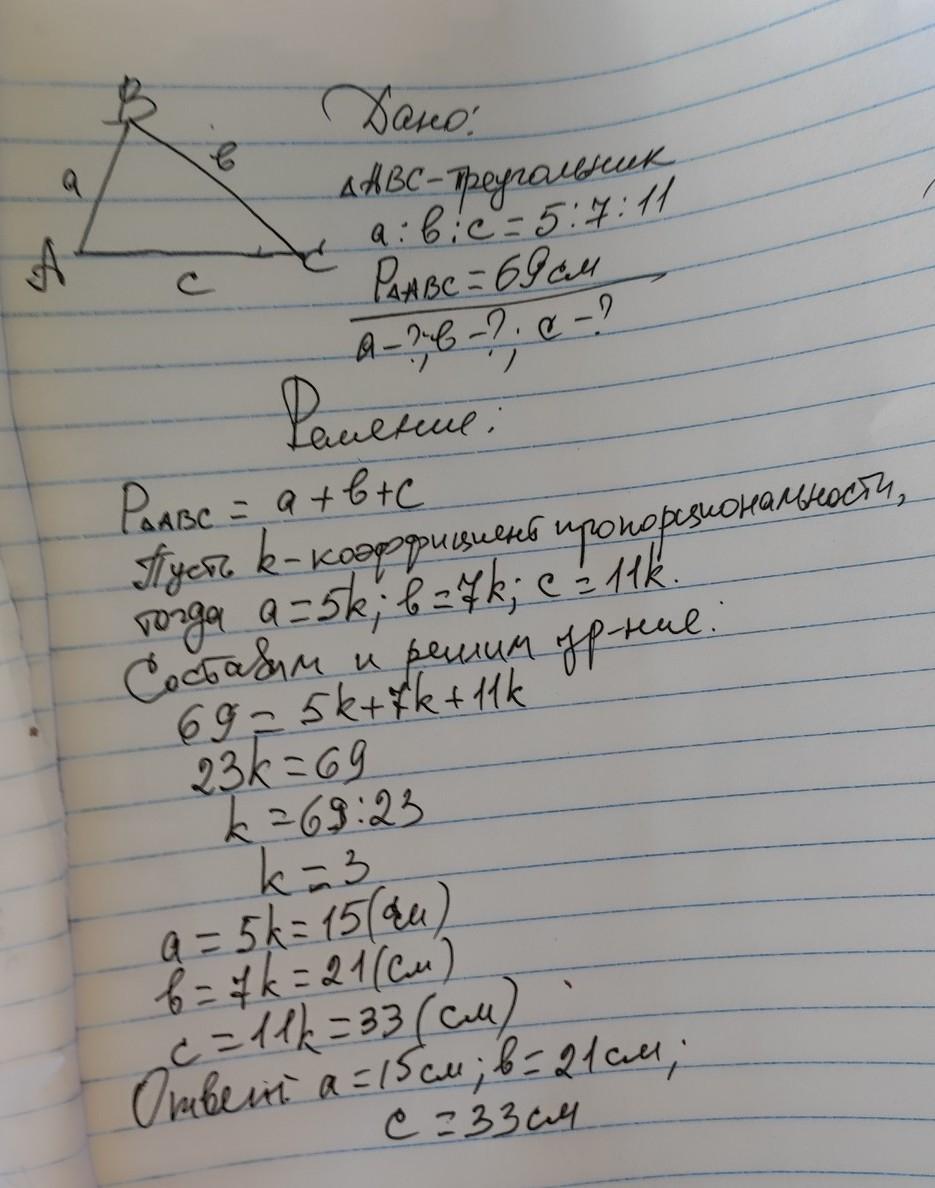 B
Дано:
a
в
ΔABC-треугольник
a:в:c=5:7:11
A
C
c
PΔABC=69см
a-?;в-?; c-?
Решение:
PΔABC = a+в+c
Пусть k-коэффициент пропорциональности,
тогда a=5k; в=7k; c=11k.
Составим и решим ур-ние:
69=5k+7k+11k
23k=69
k=69:23
k=3
a=5k=15(см)
в=7k=21(см)
c=11k=33(см)
Ответ a=15см; в=21см;
c=33см